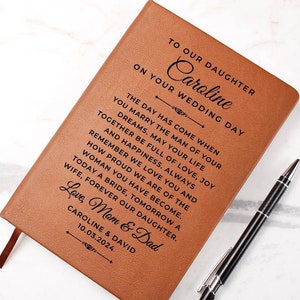 TO OUR DAUGHTER
Caroline
ON YOUR WEDDING DAY
THE DAY HAS COME WHEN
YOU MARRY THE MAN OF YOUR
DREAMS. MAY YOUR LIFE
TOGETHER BE FULL OF LOVE, JOY
AND HAPPINESS. ALWAYS
REMEMBER WE LOVE YOU AND
HOW PROUD WE ARE OF THE
WOMAN YOU HAVE BECOME.
TODAY A BRIDE, TOMORROW A
WIFE, FOREVER OUR DAUGHTER.
Love, Mom & Dad
CAROLINE & DAVID
10.03.2024